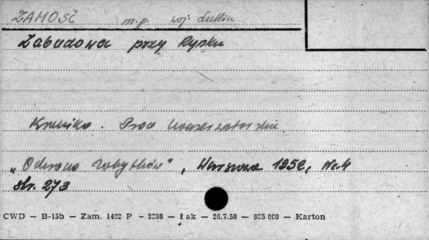 ZAMOŚĆ m.p. woj. Lublin
Zabudowa przy Rynku
Kronika. Prac konserwatorskie
„Ochrona Zabytków", Warszawa 1958, Nr. 4
str. 273
CWD — B-15b — Zam. 1492 P - 2398 — Łak — 26.7.58 — 935.000 — Karton